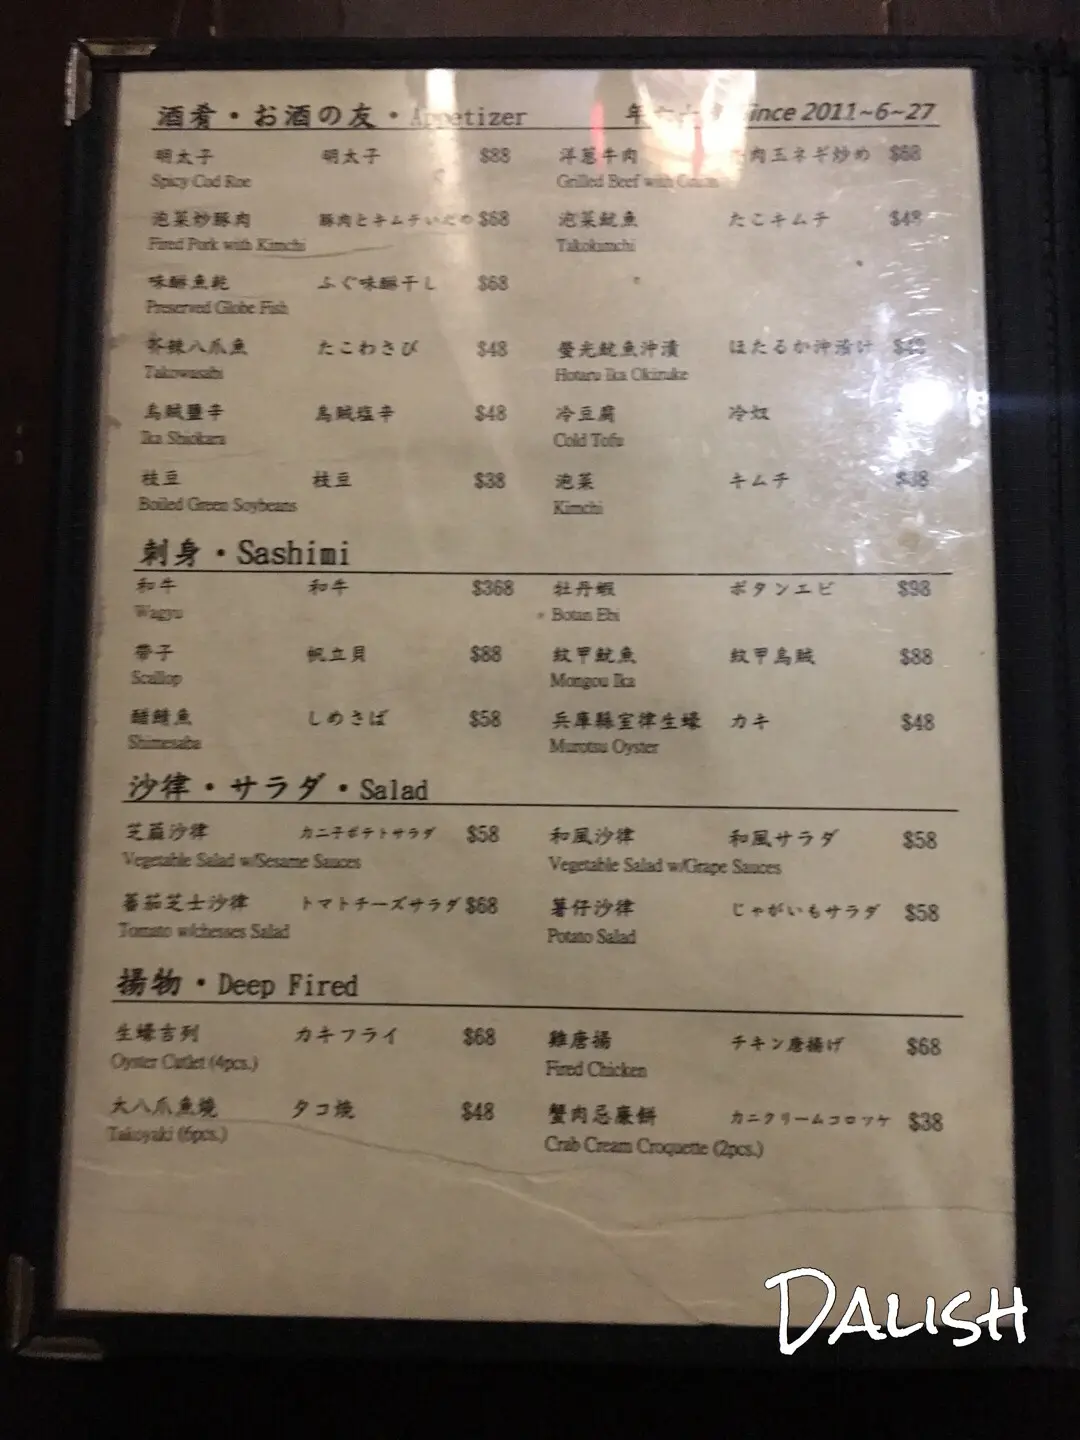 酒肴・お酒の友・Appetizer Since 2011~6~27
明太子 明太子 $88 洋葱牛肉 肉玉ネギ炒め $68
Spicy Cod Roe Grilled Beef with Onion
泡菜炒豚肉 豚肉とキムチいため $68 泡菜魷魚 たこキムチ $48
Fired Pork with Kimchi Takokimchi
味醂魚乾 ふぐ味醂干し $68
Preserved Globe Fish
芥辣八爪魚 たこわさび $48 螢光魷魚沖漬 ほたるか沖漬け $48
Takowasabi Hotaru Ika Okizuke
烏賊鹽辛 烏賊塩辛 $48 冷豆腐 冷奴
Ika Shiokara Cold Tofu
枝豆 枝豆 $38 泡菜 キムチ $38
Boiled Green Soybeans Kimchi
刺身・Sashimi
和牛 和牛 $368 牡丹蝦 ボタンエビ $98
Wagyu Botan Ebi
帶子 帆立貝 $88 紋甲魷魚 紋甲烏賊 $88
Scallop Mongou Ika
醋鯖魚 しめさば $58 兵庫縣室律生蠔 カキ $48
Shimesaba Murotsu Oyster
沙律・サラダ・Salad
芝蔴沙律 カニ子ポテトサラダ $58 和風沙律 和風サラダ $58
Vegetable Salad w/Sesame Sauces Vegetable Salad w/Grape Sauces
蕃茄芝士沙律 トマトチーズサラダ $68 薯仔沙律 じゃがいもサラダ $58
Tomato w/chesses Salad Potato Salad
揚物・Deep Fired
生蠔吉列 カキフライ $68 雞唐揚 チキン唐揚げ $68
Oyster Cutlet (4pcs.) Fired Chicken
大八爪魚燒 タコ焼 $48 蟹肉忌廉餅 カニクリームコロッケ $38
Takoyaki (6pcs.) Crab Cream Croquette (2pcs.)
DALISH